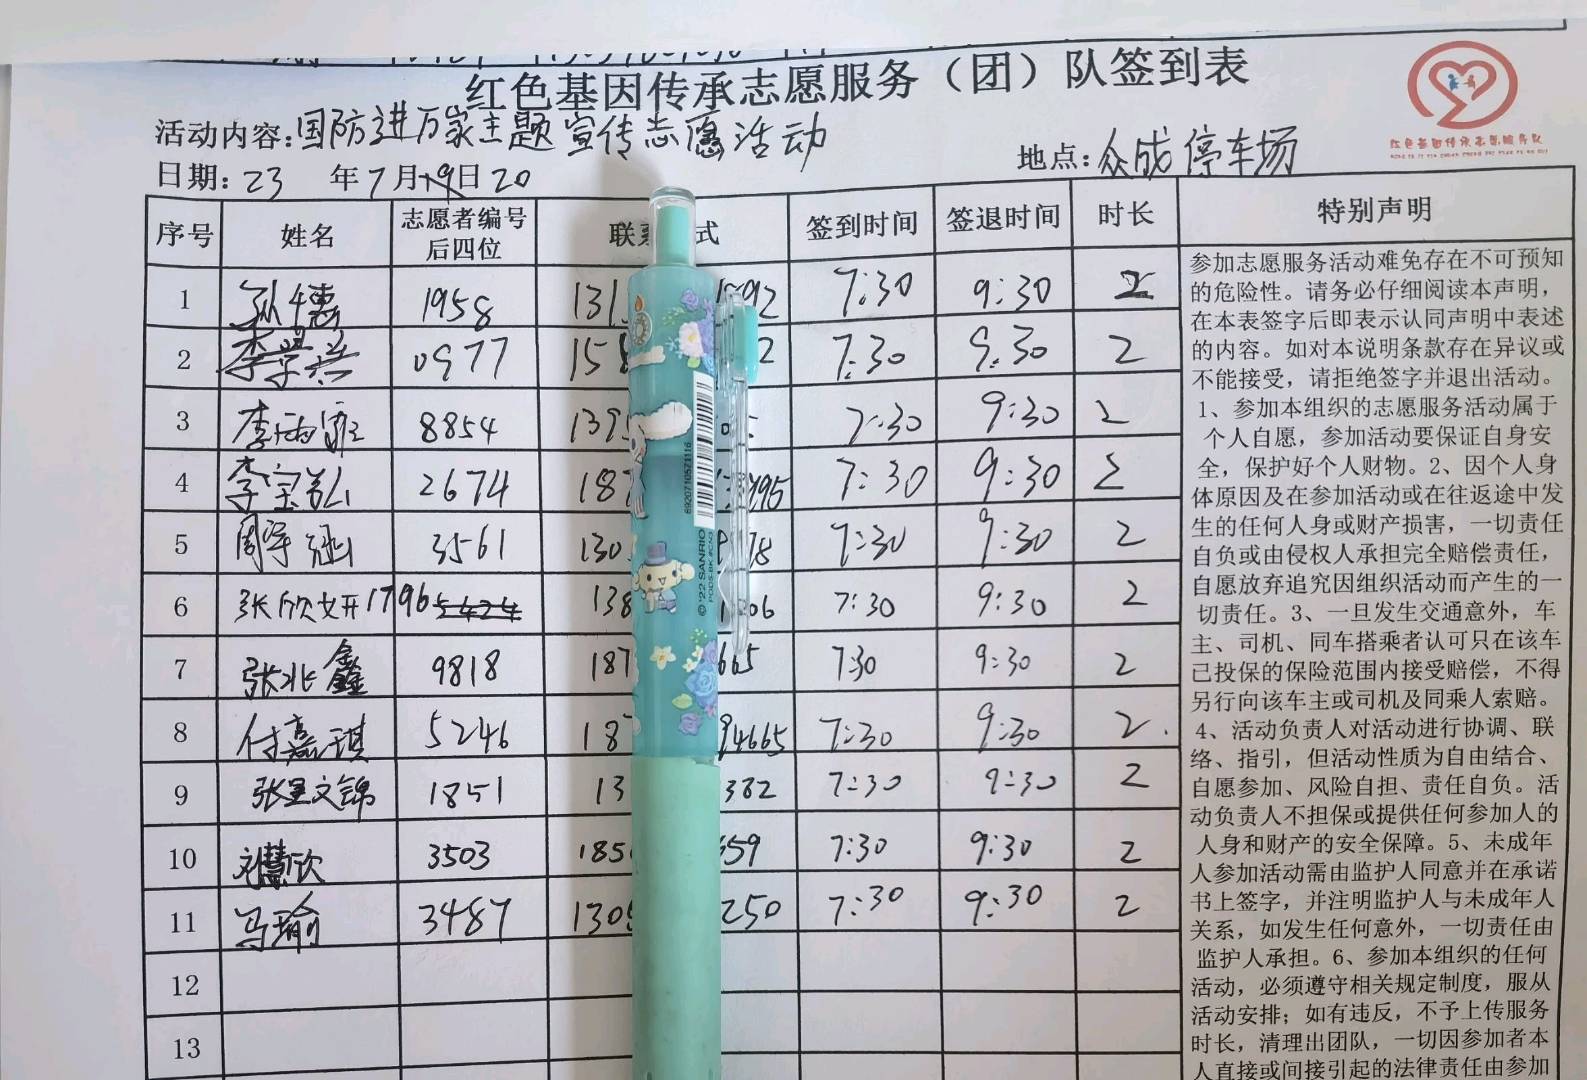 红色基因传承志愿服务（团）队签到表
活动内容:国防进万家主题宣传志愿活动
地点:众成停车场
日期:23 年7月19日 20
序号 姓名 志愿者编号后四位 签到时间 签退时间 时长 特别声明
1 1958 7:30 9:30 2
2 0977 7:30 9:30 2
3 8854 7:30 9:30 2
4 2674 7:30 9:30 2
5 3561 7:30 9:30 2
6 张欣妍 1796 5424 7:30 9:30 2
7 张兆鑫 9818 7:30 9:30 2
8 付嘉琪 5246 94665 7:30 9:30 2
9 张星文锦 1851 382 7:30 9:30 2
10 刘慧欣 3503 659 7:30 9:30 2
11 马瑜 3487 250 7:30 9:30 2
12
13
参加志愿服务活动难免存在不可预知
的危险性。请务必仔细阅读本声明，
在本表签字后即表示认同声明中表述
的内容。如对本说明条款存在异议或
不能接受，请拒绝签字并退出活动。
1、参加本组织的志愿服务活动属于
个人自愿，参加活动要保证自身安
全，保护好个人财物。2、因个人身
体原因及在参加活动或在往返途中发
生的任何人身或财产损害，一切责任
自负或由侵权人承担完全赔偿责任，
自愿放弃追究因组织活动而产生的一
切责任。3、一旦发生交通意外，车
主、司机、同车搭乘者认可只在该车
已投保的保险范围内接受赔偿，不得
另行向该车主或司机及同乘人索赔。
4、活动负责人对活动进行协调、联
络、指引，但活动性质为自由结合、
自愿参加、风险自担、责任自负。活
动负责人不担保或提供任何参加人的
人身和财产的安全保障。5、未成年
人参加活动需由监护人同意并在承诺
书上签字，并注明监护人与未成年人
关系，如发生任何意外，一切责任由
监护人承担。6、参加本组织的任何
活动，必须遵守相关规定制度，服从
活动安排；如有违反，不予上传服务
时长，清理出团队，一切因参加者本
人直接或间接引起的法律责任由参加
红色基因传承志愿服务队
6920710571116
© '22 SANRIO